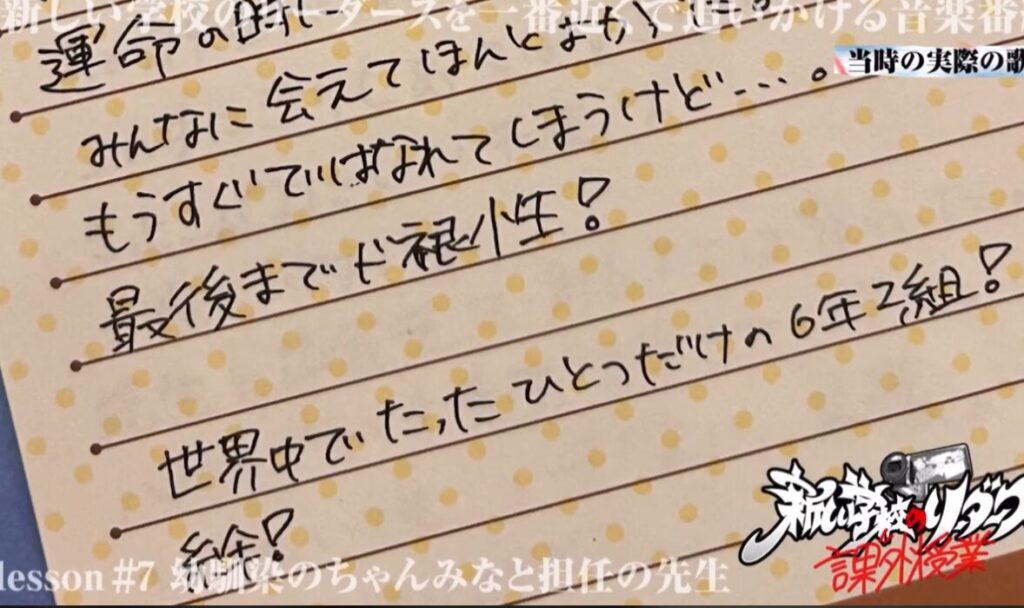 新しい学校のリーダーズを一番近くで追いかける音楽番
当時の実際の歌
運命の
みんなに会えてほんと
もうすぐではなれてしまうけど…。
最後までド根小生!
世界中でたったひとつだけの6年2組!
新しい学校のリーダーズ
課外授業
lesson #7 幼馴染のちゃんみなと担任の先生